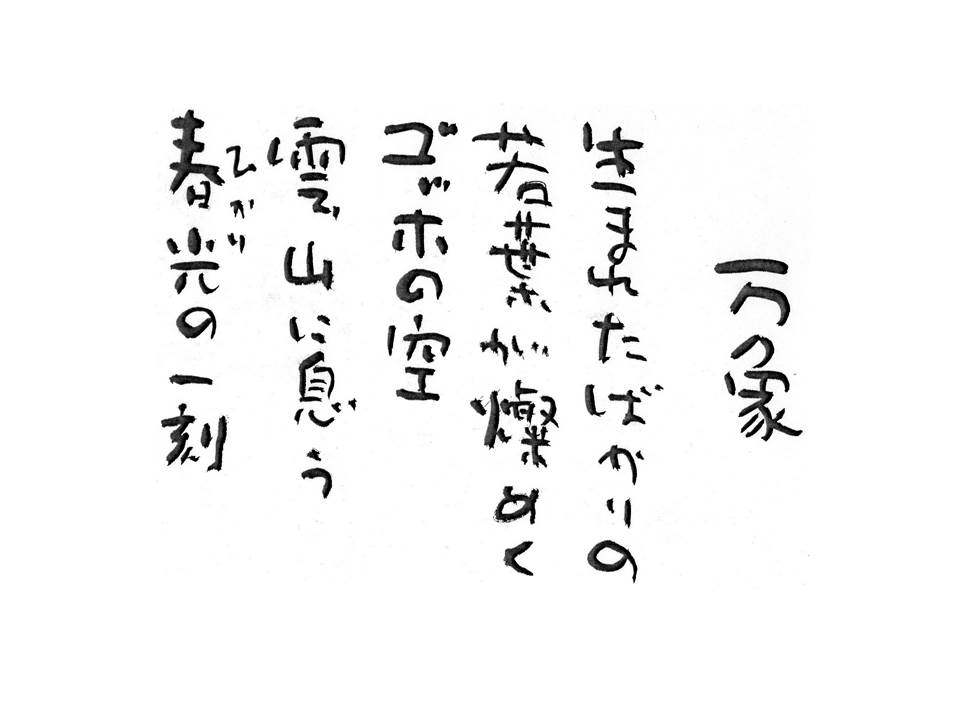 万象
生まれたばかりの
若葉が燦めく
ゴッホの空
雲山に息う
ひかり
春光の一刻